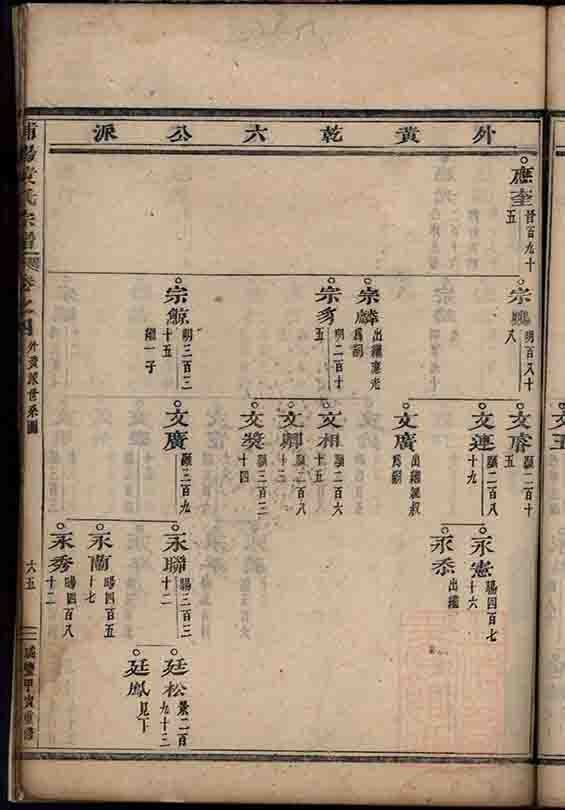 外黄乾六公派
應奎
晉百九十
五
宗鵬
明百八十
八
宗麟
出繼應光
爲嗣
宗豸
明二百十
五
宗鯨
明三百三
十五
繼一子
文睿
顯二百十
五
文連
顯二百八
十九
文廣
出繼鯨叔
爲嗣
文相
顯二百六
十五
文卿
顯二百八
十二
文獎
顯三百三
十四
文廣
顯三百九
永憲
暘四百七
十六
永忝
出繼
永聯
暘三百三
十二
永蘭
暘四百五
十七
永秀
暘四百八
十二
廷松
景二百
九十三
廷鳳
見下
氏宗譜
卷之四
外黄派世系圖
六五
咸豐甲寅重修